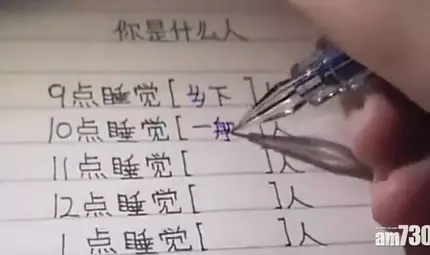 你是什么人
9点睡觉[乡下 ]人
10点睡觉[一般 ]人
11点睡觉[ ]人
12点睡觉[ ]人
1点睡觉[ ]人
am730